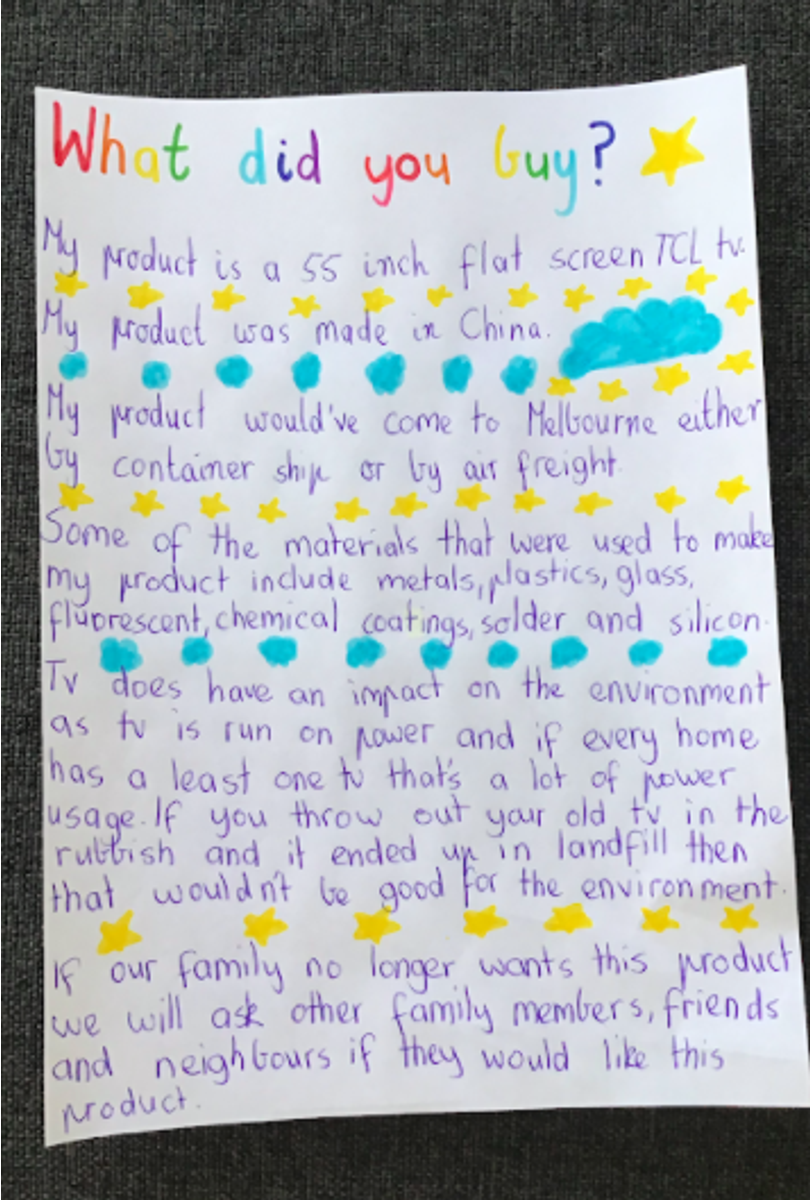 What did you buy?
My product is a 55 inch flat screen TCL tv.
My product was made in China.
My product would've come to Melbourne either
by container ship or by air freight.
Some of the materials that were used to make
my product include metals, plastics, glass,
fluorescent, chemical coatings, solder and silicon.
Tv does have an impact on the environment
as tv is run on power and if every home
has a least one tv that's a lot of power
usage. If you throw out your old tv in the
rubbish and it ended up in landfill then
that wouldn't be good for the environment.
If our family no longer wants this product
we will ask other family members, friends
and neighbours if they would like this
product.